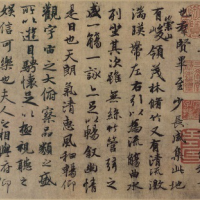 也羣賢畢至少長咸集此地
有崇山峻領茂林脩竹又有清流激
湍暎帶左右引以為流觴曲水
列坐其次雖無絲竹管弦之
盛一觴一詠亦足以暢敘幽情
是日也天朗氣清惠風和暢仰
觀宇宙之大俯察品類之盛
所以遊目騁懷足以極視聽之
娛信可樂也夫人之相與俯仰